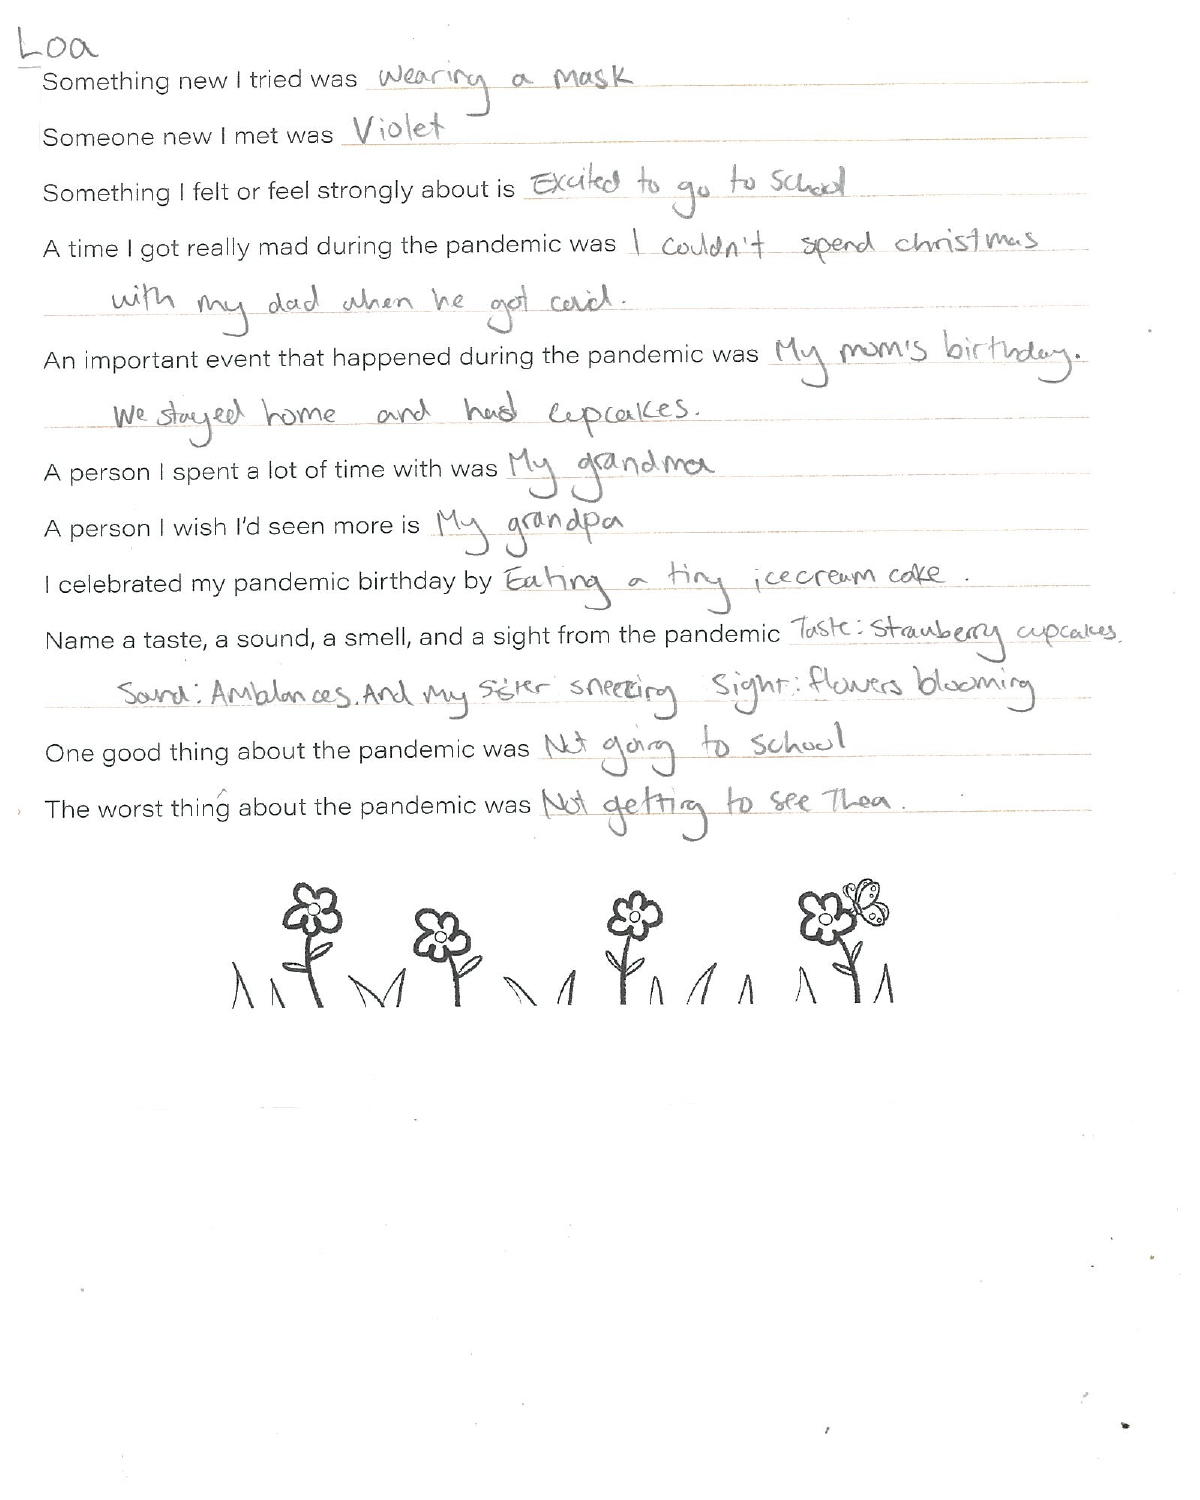 Loa
Something new I tried was wearing a mask
Someone new I met was Violet
Something I felt or feel strongly about is Excited to go to school
A time I got really mad during the pandemic was I couldn't spend christmas
with my dad when he got covid.
An important event that happened during the pandemic was My mom's birthday.
We stayed home and had cupcakes.
A person I spent a lot of time with was My grandma
A person I wish I'd seen more is My grandpa
I celebrated my pandemic birthday by Eating a tiny icecream cake.
Name a taste, a sound, a smell, and a sight from the pandemic Taste: Strawberry cupcakes.
Sound: Amblances. And my sister sneezing Sight: flowers blooming
One good thing about the pandemic was Not going to school
The worst thing about the pandemic was Not getting to see Thea.